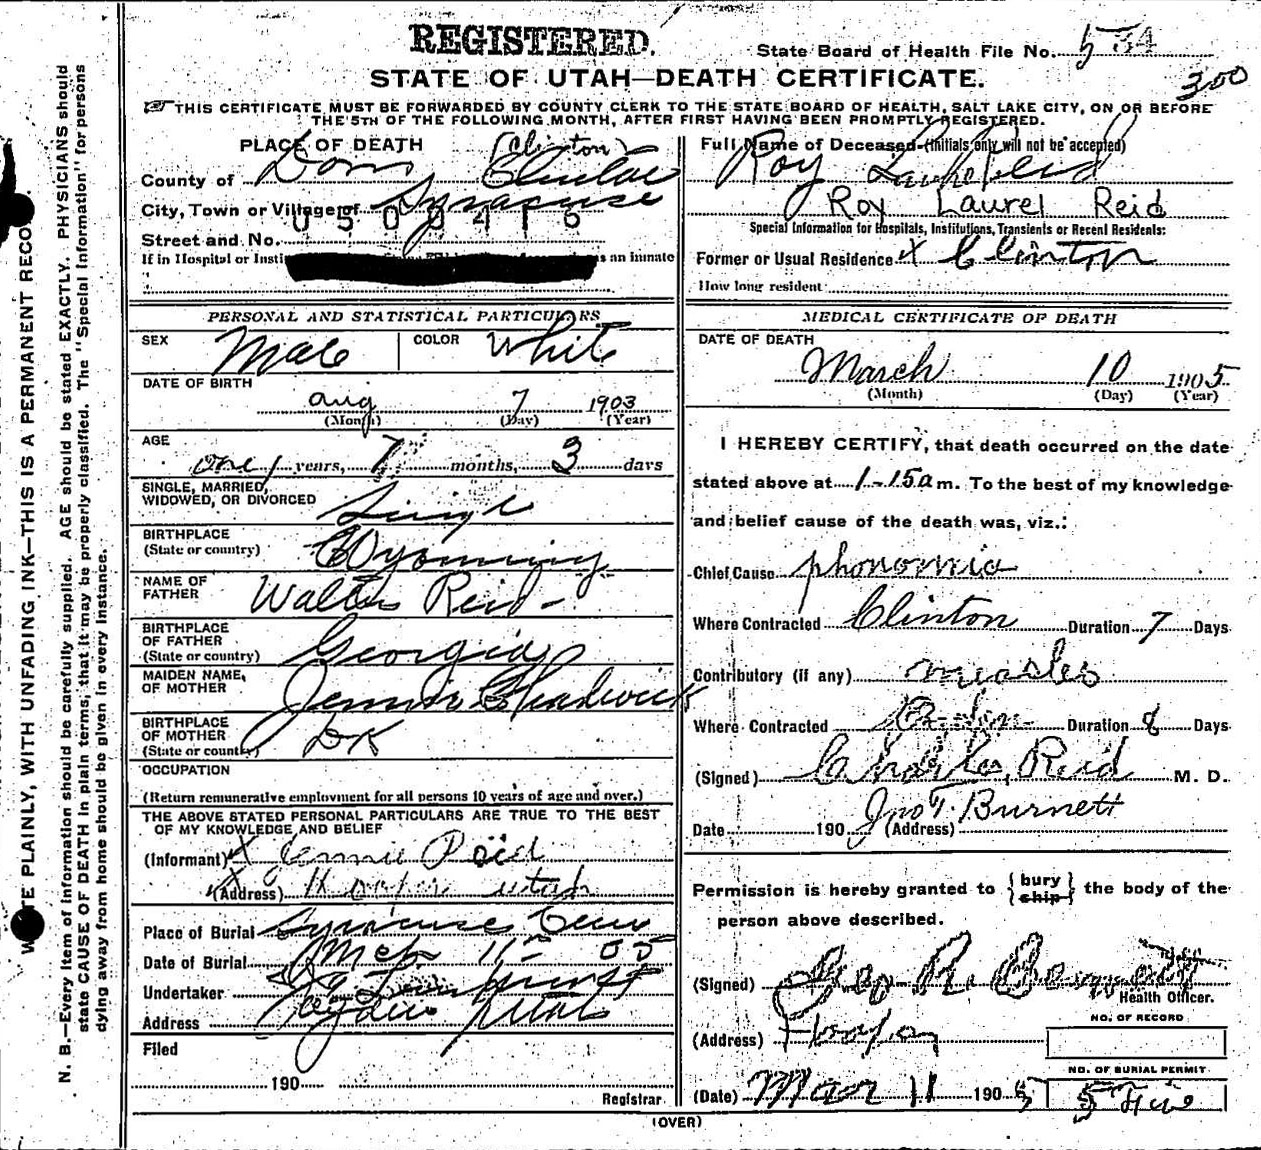 REGISTERED.
State Board of Health File No. 534
300
STATE OF UTAH—DEATH CERTIFICATE.
THIS CERTIFICATE MUST BE FORWARDED BY COUNTY CLERK TO THE STATE BOARD OF HEALTH, SALT LAKE CITY, ON OR BEFORE
THE 5TH OF THE FOLLOWING MONTH, AFTER FIRST HAVING BEEN PROMPTLY REGISTERED.
PLACE OF DEATH (Clinton)
County of Davis Clinton
City, Town or Village of Syracuse
0500416
Street and No.
If in Hospital or Insti is an inmate
Full Name of Deceased (Initials only will not be accepted)
Roy Reid
Roy Laurel Reid
Special Information for Hospitals, Institutions, Transients or Recent Residents:
Former or Usual Residence x Clinton
How long resident
PERSONAL AND STATISTICAL PARTICULARS
SEX Male COLOR White
DATE OF BIRTH
Aug 7 1903
(Month) (Day) (Year)
AGE
one years, 7 months, 3 days
SINGLE, MARRIED,
WIDOWED, OR DIVORCED Single
BIRTHPLACE
(State or country) Wyoming
NAME OF
FATHER Walter Reid
BIRTHPLACE
OF FATHER
(State or country) Georgia
MAIDEN NAME,
OF MOTHER Jennie Chadwick
BIRTHPLACE
OF MOTHER
(State or country) DK
OCCUPATION
(Return remunerative employment for all persons 10 years of age and over.)
THE ABOVE STATED PERSONAL PARTICULARS ARE TRUE TO THE BEST
OF MY KNOWLEDGE AND BELIEF
(Informant) x Jennie Reid
(Address) x Hooper Utah
Place of Burial Syracuse Cem
Date of Burial Mch 11 - 05
Undertaker
Address Layton Utah
Filed
190
Registrar
MEDICAL CERTIFICATE OF DEATH
DATE OF DEATH
March 10 1905
(Month) (Day) (Year)
I HEREBY CERTIFY, that death occurred on the date
stated above at 1-15 a m. To the best of my knowledge
and belief cause of the death was, viz.:
Chief Cause phonomia
Where Contracted Clinton Duration 7 Days
Contributory (if any) measles
Where Contracted Duration 8 Days
(Signed) Reid M. D.
Jno T. Burnett
Date 190 (Address)
Permission is hereby granted to {bury ship} the body of the
person above described.
(Signed) Geo R. Bennett
Health Officer.
(Address) Hooper
NO. OF RECORD
NO. OF BURIAL PERMIT
(Date) Mar 11 1905 5 Five
(OVER)
N. B.—Every item of information should be carefully supplied. AGE should be stated EXACTLY. PHYSICIANS should
state CAUSE OF DEATH in plain terms, that it may be properly classified. The "Special Information" for persons
dying away from home should be given in every instance.
PLAINLY, WITH UNFADING INK—THIS IS A PERMANENT RECO